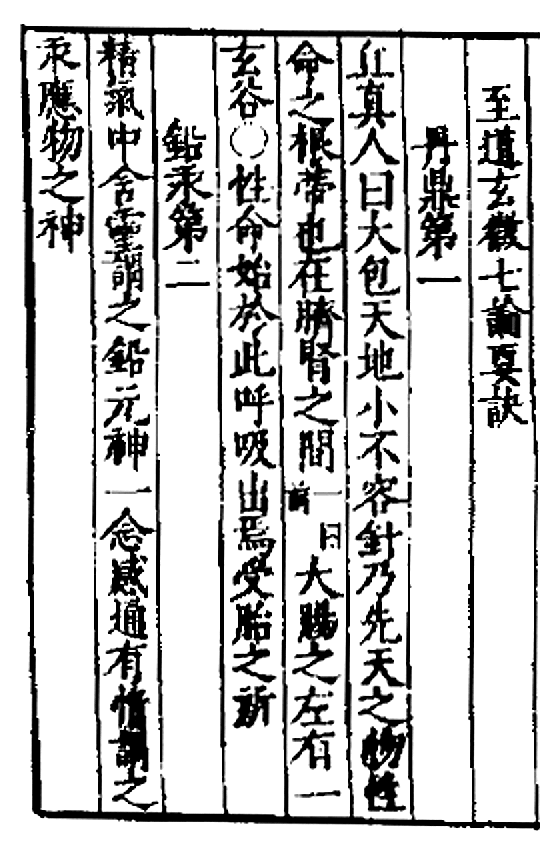 至道玄微七論要訣
丹鼎第一
丘真人曰大包天地小不容針乃先天之物性
命之根蒂也在臍腎之間一曰前大腸之左有一
玄谷〇性命始於此呼吸出焉受胎之所
鉛汞第二
精氣中含靈謂之鉛元神一念感通有情謂之
汞應物之神